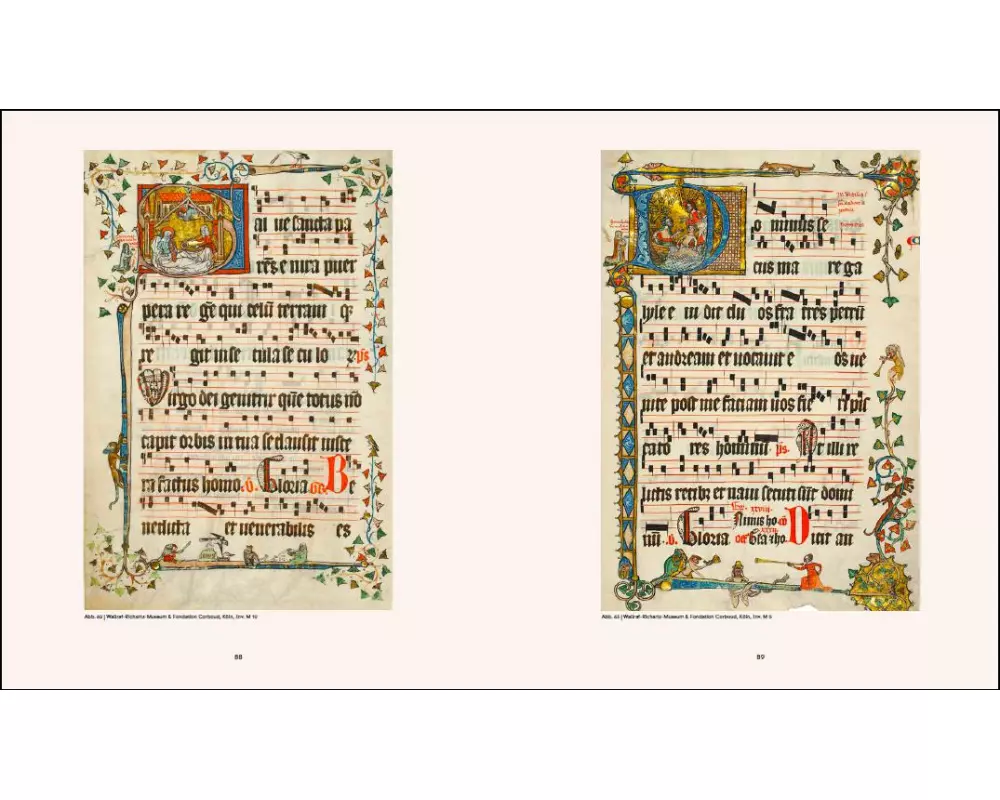 Sal ue sancta pa
rēs e nixa puer
pera re gē qui celū terram qz
re git in se cula se cu lo rz ps
Virgo dei genitrix quē totus nō
capit orbis in tua se clausit visce
ra factus homo. v. Gloria. Be
nedicta et uenerabilis es
Wallraf-Richartz-Museum & Fondation Corboud, Köln, Inv. M 10
88
Do minus se
cus ma re ga
lylee ui dit du os fra tres petrū
et andream et uocauit e os ue
nite post me faciam uos fie ri pis
cato res hominū ps. At illi re
lictis retibz et naui secuti sūt domi
nū. v. Gloria Dicit an
Wallraf-Richartz-Museum & Fondation Corboud, Köln, Inv. M
89